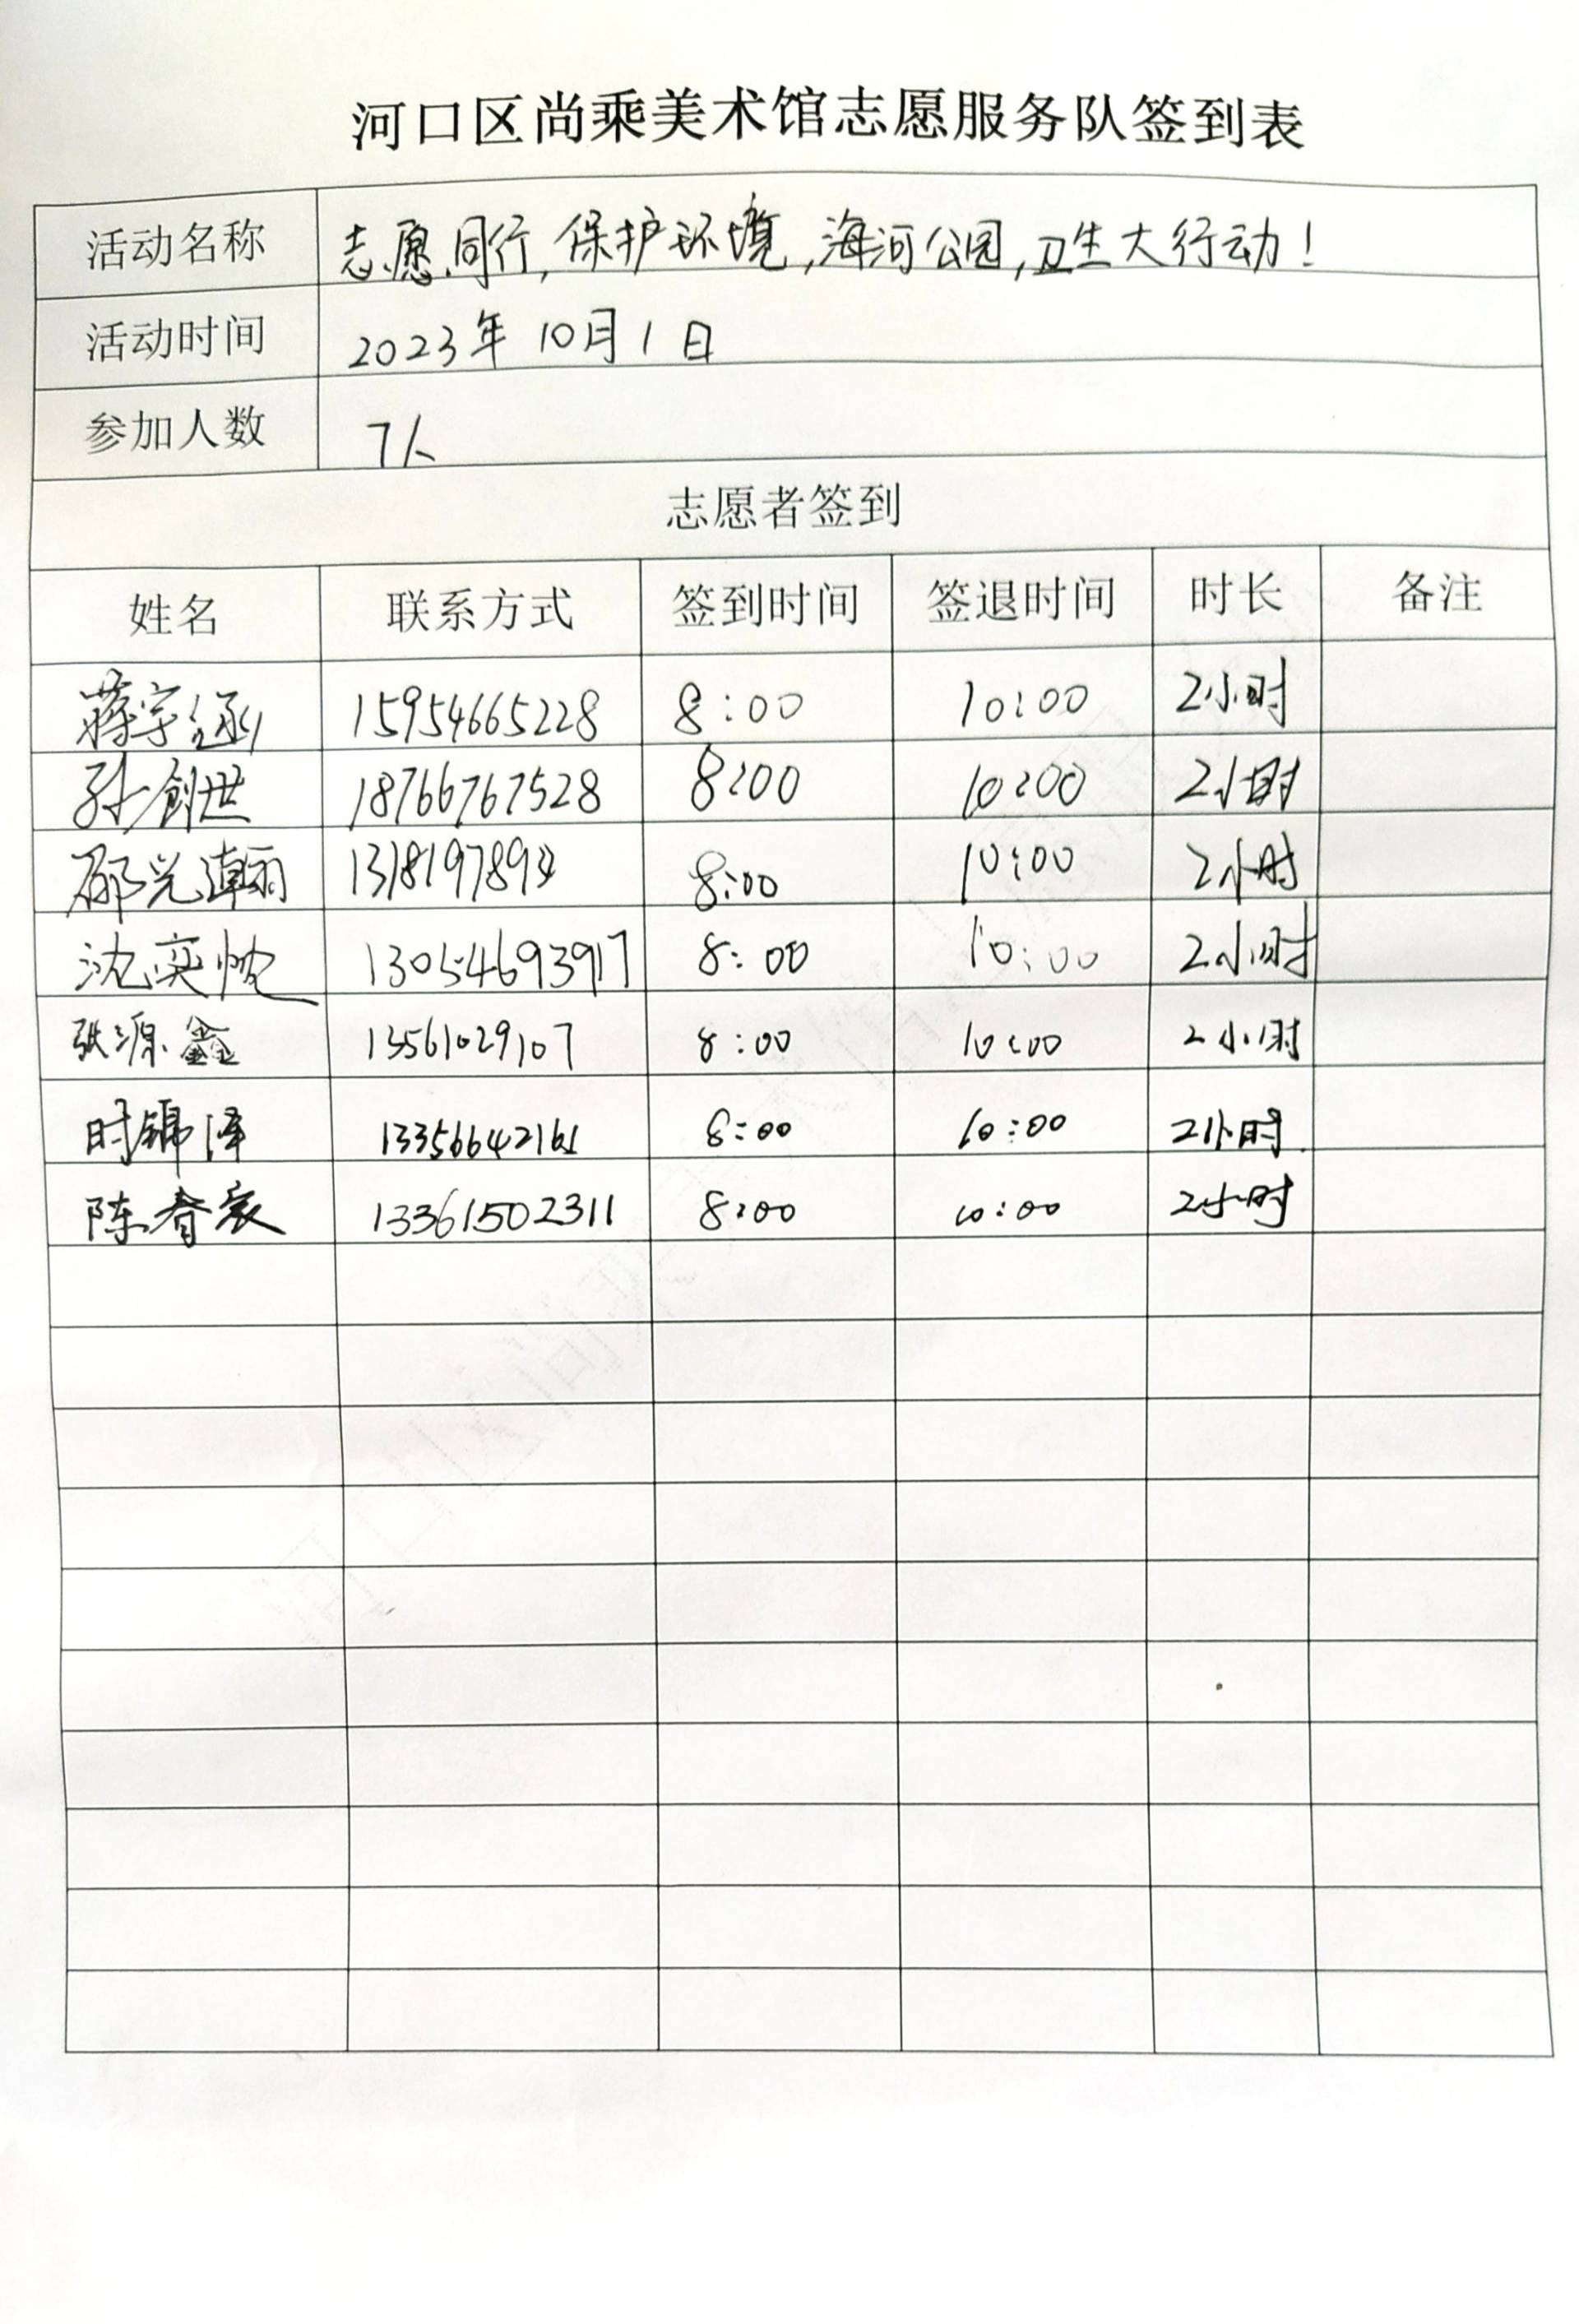 河口区尚乘美术馆志愿服务队签到表
活动名称 志愿同行,保护环境,海河公园,卫生大行动!
活动时间 2023年10月1日
参加人数 7人
志愿者签到
姓名 联系方式 签到时间 签退时间 时长 备注
蒋宇 15954665228 8:00 10:00 2小时
孙创世 18766767528 8:00 10:00 2小时
邵光 8:00 10:00 2小时
沈奕忱 13054693917 8:00 10:00 2小时
张源鑫 13561029107 8:00 10:00 2小时
时锦泽 8:00 10:00 2小时
陈春 13361502311 8:00 10:00 2小时